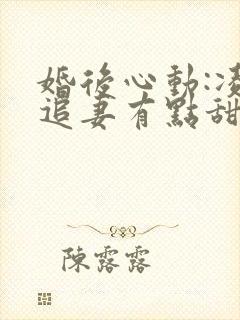 婚後心動:凌
追妻有點甜
陳露露